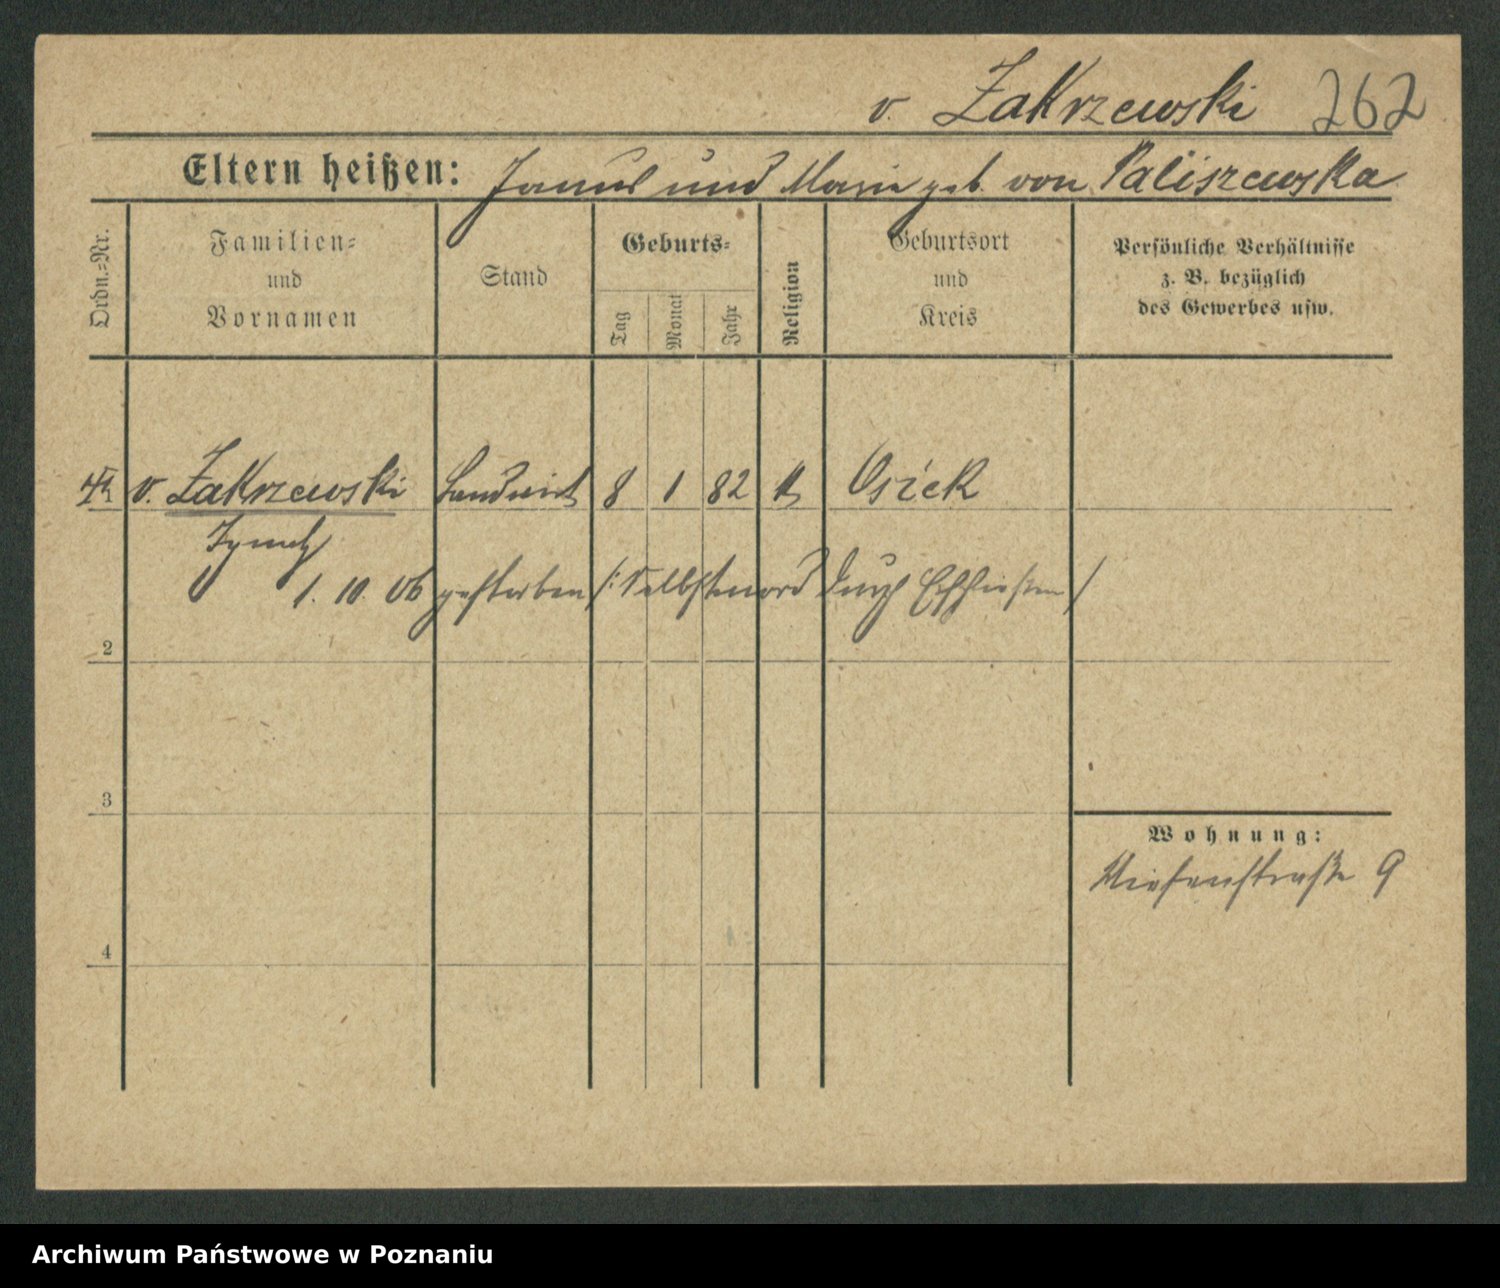 v. Zakrzewski 262
Eltern heißen: Janus und Marie geb. von Paliszewska
Ordn.=Nr.
Familien=
und
Vornamen
Stand
Geburts=
Tag
Monat
Jahr
Religion
Geburtsort
und
Kreis
Persönliche Verhältnisse
z. B. bezüglich
des Gewerbes usw.
v. Zakrzewski Landwirt 8 1 82 k Osiek
Ignatz
1. 10. 06 gestorben /: Selbstmord durch Erschießen /
2
3
Wohnung:
Wiesenstraße 9
4
Archiwum Państwowe w Poznaniu